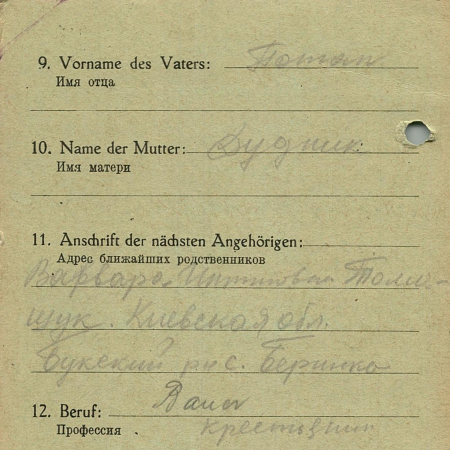 9. Vorname des Vaters: Потап
Имя отца
10. Name der Mutter: Дудник
Имя матери
11. Anschrift der nächsten Angehörigen:
Адрес ближайших родственников
Варвара Полі-
щук. Киевская обл.
Букский р-н с.
12. Beruf: Bauer
Профессия крестьянин